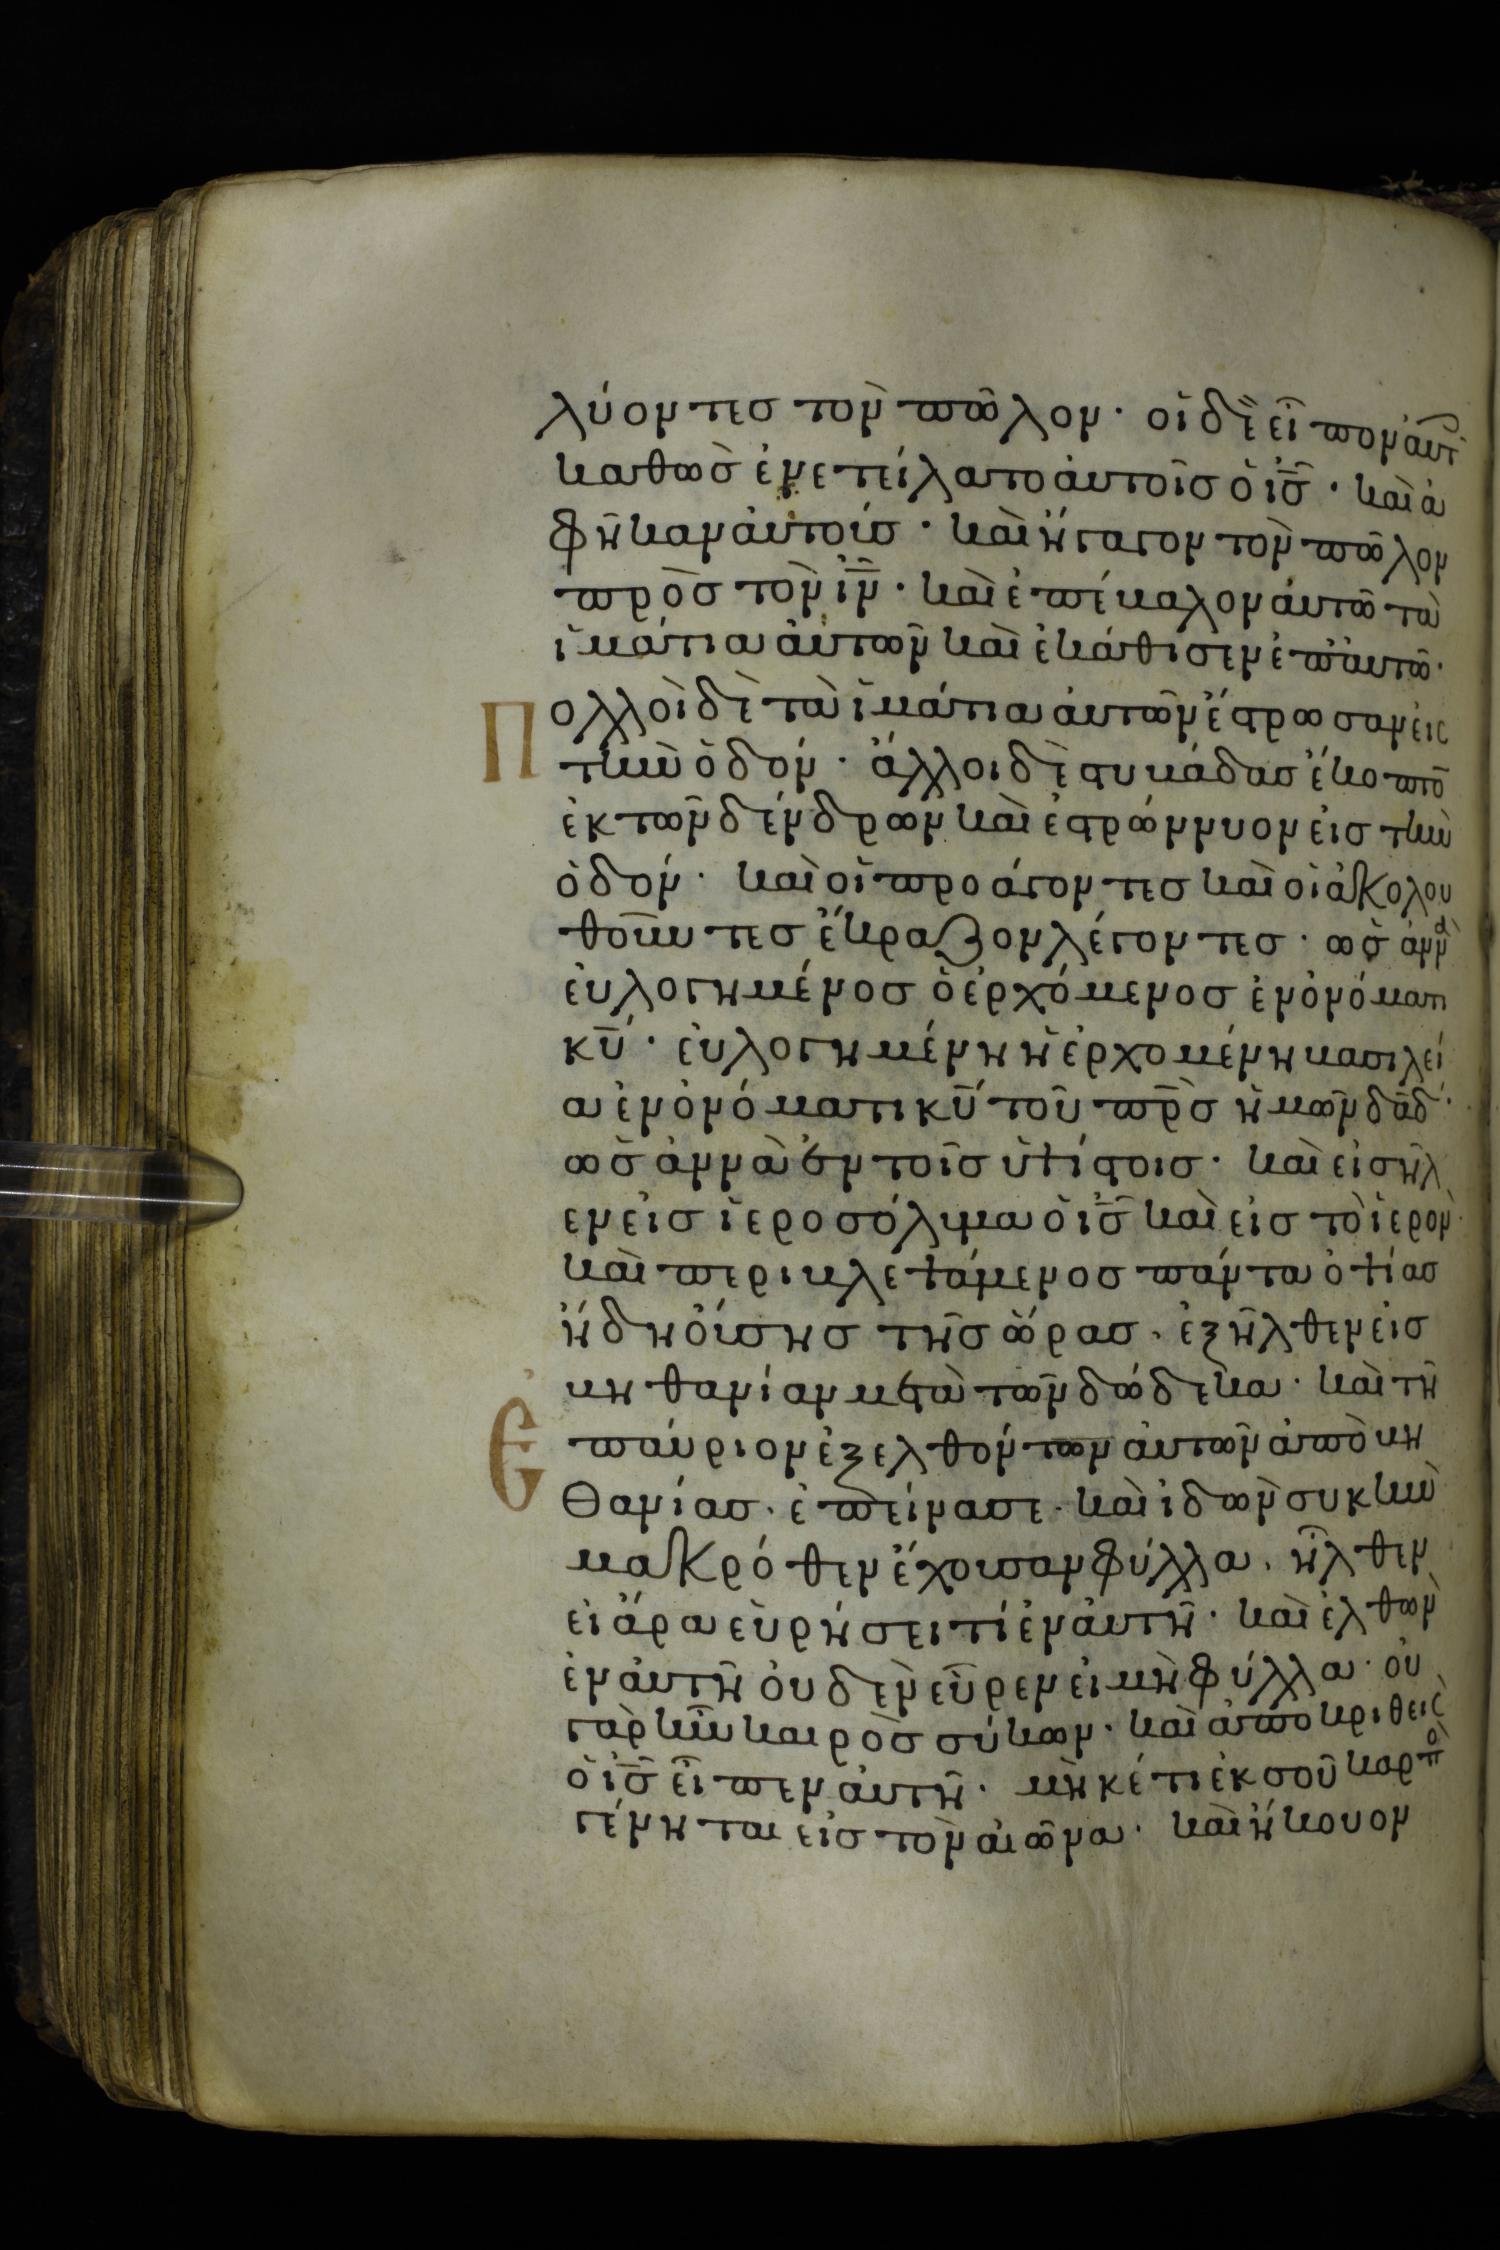 λύοντεσ τὸν πῶλον· οἱ δὲ εἶπον ἀυτ
καθὼσ ἐνετείλατο ἀυτοῖσ ὁ ις̅· καὶ ἀ
φῆκαν ἀυτοίσ· καὶ ἤγαγον τὸν πῶλον
πρὸσ τὸν ιν̅· καὶ ἐπέβαλον ἀυτῶ τὰ
ἱμάτια ἀυτῶν καὶ ἐκάθισεν ἐπ ἀυτῶ·
Πολλοὶ δὲ τὰ ἱμάτια ἀυτῶν ἔστρωσαν εἰς
τὴν ὁδόν· ἄλλοι δὲ στυβάδασ ἔκοπτο̅
ἐκ τῶν δένδρων καὶ ἐστρώννυον εἰσ τὴν
ὁδόν· καὶ οἱ προάγοντεσ καὶ οἱ ἀκολου
θοῦντεσ ἔκραζον λέγοντεσ· ὡσ ἀννὰ
ἐυλογημένοσ ὁ ἐρχόμενοσ ἐν ὀνόματι
κυ̅· ἐυλογημένη ἡ ἐρχομένη βασιλεί
α ἐν ὀνόματι κυ̅ τοῦ πρ̅σ ἡμῶν δα̅δ·
ὡσ ἀννὰ ἐν τοῖσ ὑψίστοισ· καὶ εἰσῆλ
εν εἰσ ἱεροσόλυμα ὁ ις̅ καὶ εἰσ τὸ ἱερὸν·
καὶ περιβλεψάμενοσ πάντα ὀψίασ
ἤδη ὄυσησ τῆσ ὥρασ· ἐξῆλθεν εἰσ
βηθανίαν μετὰ τῶν δώδεκα· καὶ τῆ
Ἐπαύριον ἐξελθόντων ἀυτῶν ἀπὸ βη
θανίασ· ἐπείνασε· καὶ ἰδὼν συκὴν
μακρόθεν ἔχουσαν φύλλα· ἦλθεν
εἰ ἄρα εὑρήσει τί ἐν ἀυτῆ· καὶ ἐλθὼν
ἐν ἀυτῆ ὀυδὲν εὗρεν εἰ μὴ φύλλα· ὀυ
γὰρ ἦν καιρὸσ σύκων· καὶ ἀποκριθεὶς
ὁ ις̅ εἶπεν ἀυτῆ· μὴκέτι ἐκ σοῦ καρπὸ
γένηται εἰσ τὸν ἀιῶνα· καὶ ἤκουον